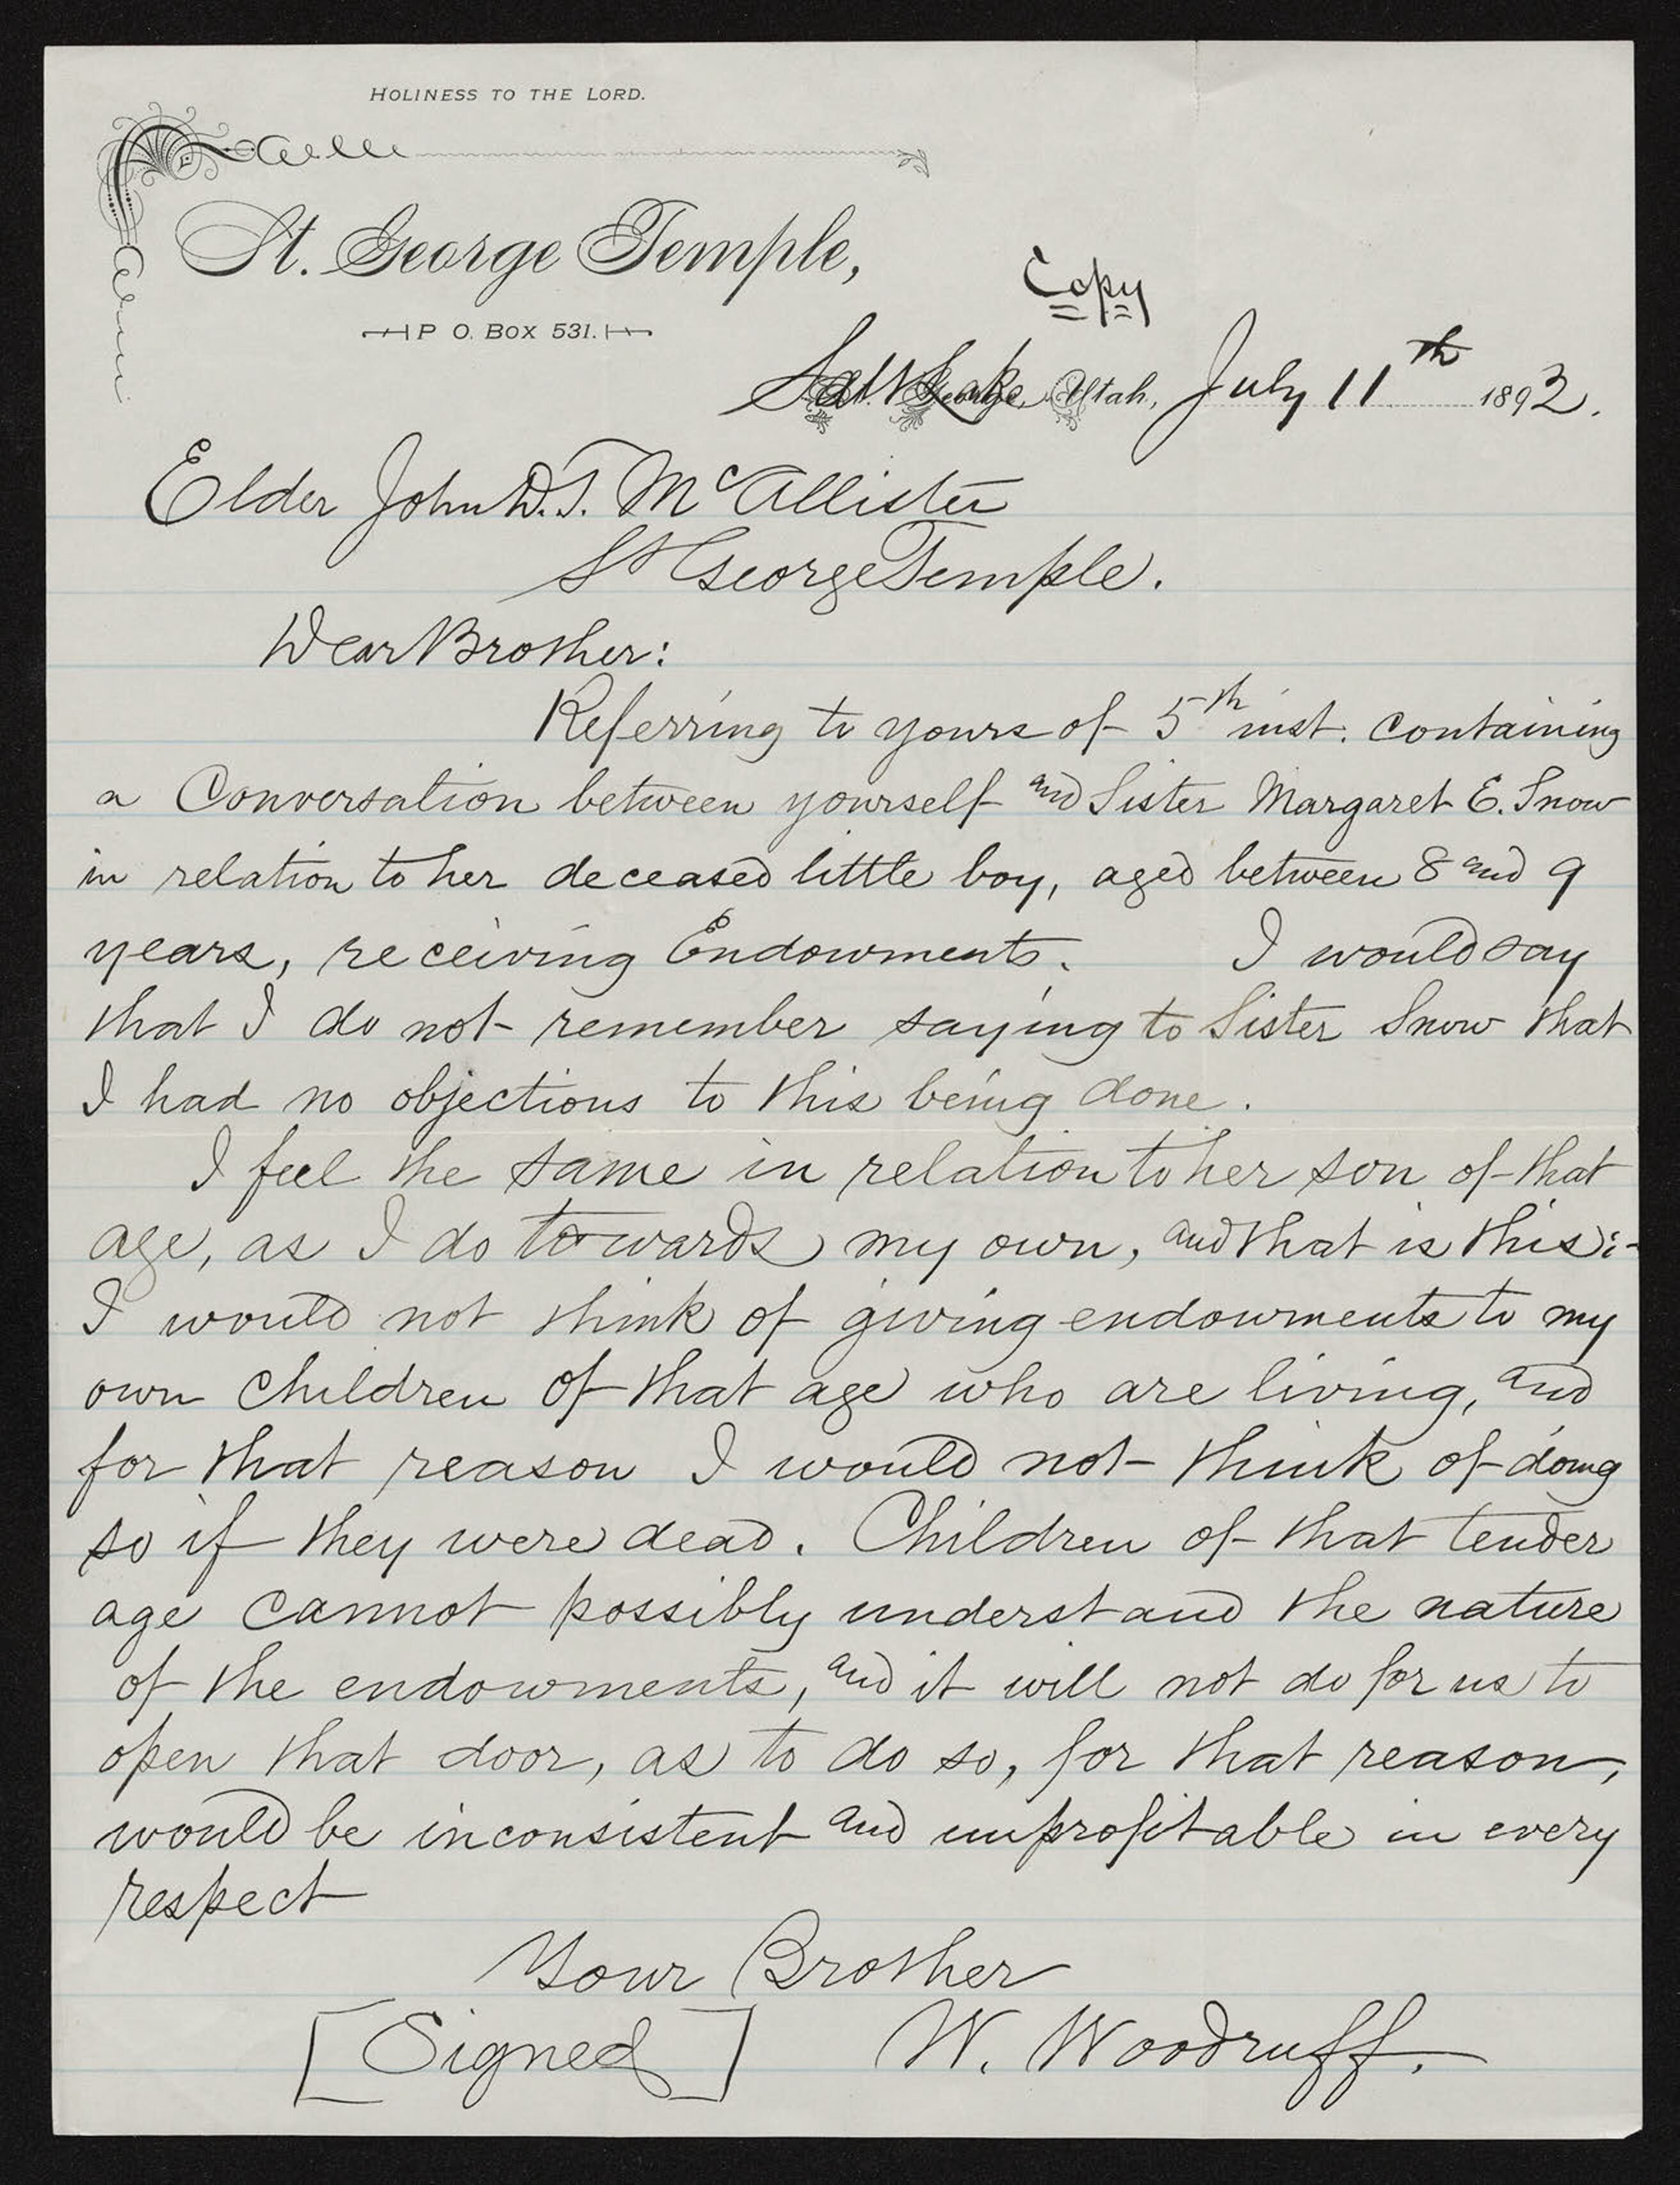 HOLINESS TO THE LORD.
St. George Temple,
P O. BOX 531.
Copy
Salt Lake, Utah, July 11th 1892.
Elder John D. T. McAllister
St George Temple.
Dear Brother:
Referring to yours of 5th inst. containing
a Conversation between yourself and Sister Margaret E. Snow
in relation to her deceased little boy, aged between 8 and 9
years, receiving Endowments. I would say
that I do not remember saying to Sister Snow that
I had no objections to this being done.
I feel the same in relation to her son of that
age, as I do towards my own, and that is this:-
I would not think of giving endowments to my
own children of that age who are living, and
for that reason I would not think of doing
so if they were dead. Children of that tender
age cannot possibly understand the nature
of the endowments, and it will not do for us to
open that door, as to do so, for that reason,
would be inconsistent and unprofitable in every
respect
Your Brother
[Signed] W. Woodruff.